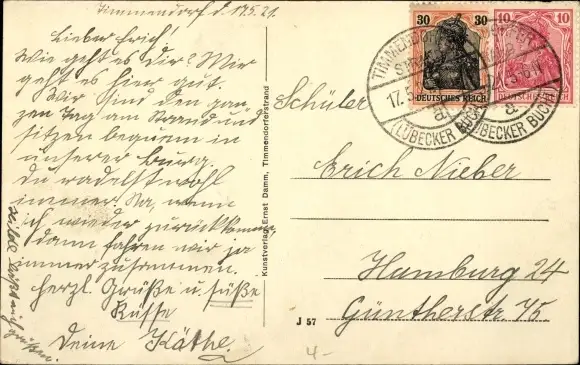 Timmendorf d. 17.5.21.
Lieber Erich!
Wie geht es Dir? Mir
geht es hier gut.
Wir sind den gan
zen Tag am Strand und
sitzen bequem in
unserer Burg.
Du radelst wohl
immer. Na, wenn
ich wieder zurückkomme,
dann fahren wir ja
immer zusammen.
herzl. Grüße u. süße
Küsse
Deine Käthe.
läßt auch grüßen.
Kunstverlag Ernst Damm, Timmendorferstrand
30 30
DEUTSCHES REICH
10 10
DEUTSCHES REICH
TIMMENDORF
17.5
a
(LÜBECKER BUCHT)
21.5-6N
a
LÜBECKER BUCHT)
Schüler
Erich Nieber
Hamburg 24
Güntherstr. 75
J 57
4-